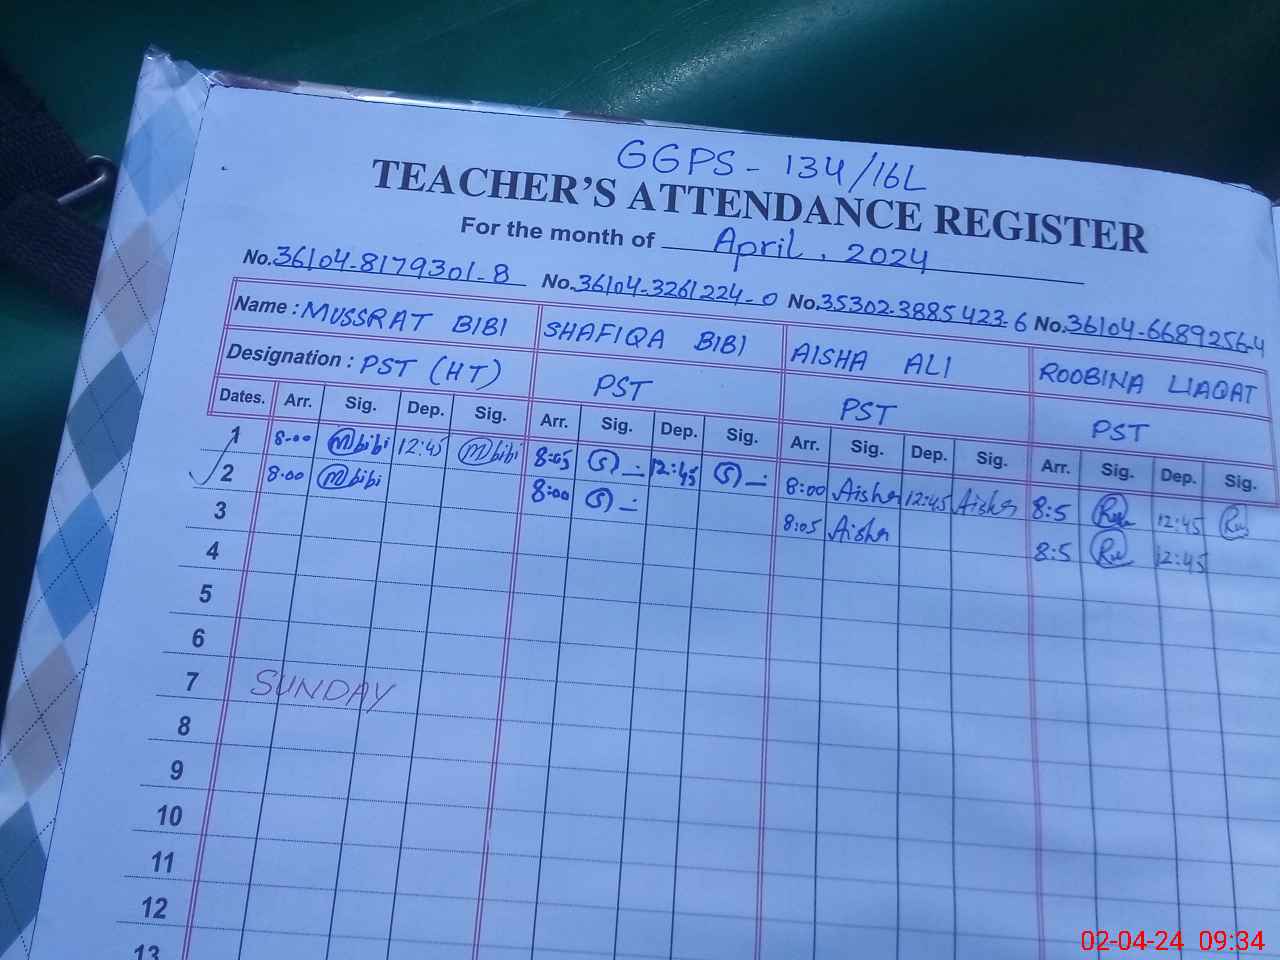 GGPS - 134/16L
TEACHER'S ATTENDANCE REGISTER
For the month of April, 2024
No. 36104-8179301-8 No. 36104-3261224-0 No. 35302-3885423-6 No. 36104-6689256-4
Name : MUSSRAT BIBI SHAFIQA BIBI AISHA ALI ROOBINA LIAQAT
Designation : PST (HT) PST PST PST
Dates. Arr. Sig. Dep. Sig. Arr. Sig. Dep. Sig. Arr. Sig. Dep. Sig. Arr. Sig. Dep. Sig.
1 8:00 Mbibi 12:45 Mbibi 8:05 (S) 12:45 (S) 8:00 Aisha 12:45 Aisha 8:5 12:45
2 8:00 Mbibi 8:00 (S) 8:05 Aisha 8:5 12:45
3
4
5
6
7 SUNDAY
8
9
10
11
12
13
02-04-24 09:34